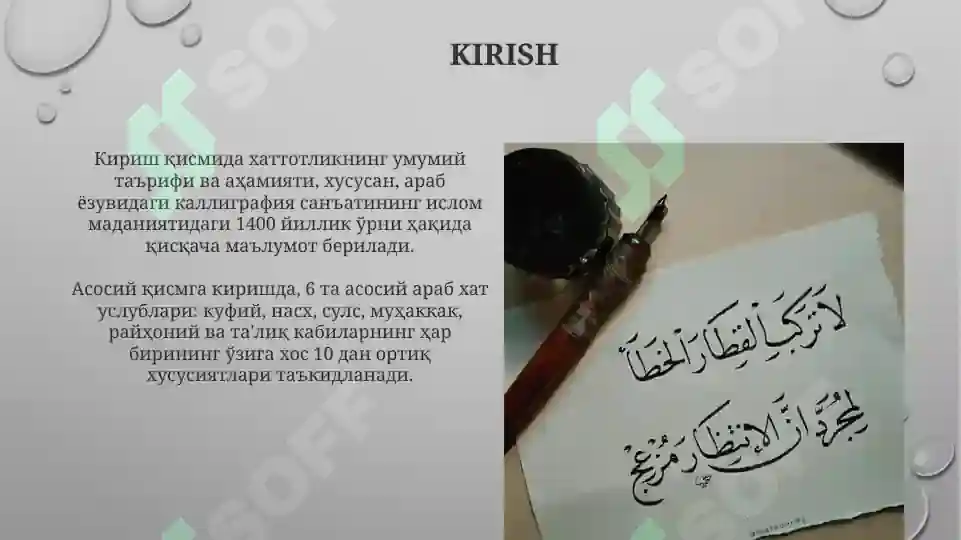 KIRISH
Кириш қисмида хаттотликнинг умумий
таърифи ва аҳамияти, хусусан, араб
ёзувидаги каллиграфия санъатининг ислом
маданиятидаги 1400 йиллик ўрни ҳақида
қисқача маълумот берилади.
Асосий қисмга киришда, 6 та асосий араб хат
услублари: куфий, насх, сулс, муҳаккак,
райҳоний ва та'лиқ кабиларнинг ҳар
бирининг ўзига хос 10 дан ортиқ
хусусиятлари таъкидланади.
لَا تَرْكَبِ الْقِطَارَ الْخَطَأَ
لِمُجَرَّدِ أَنَّ الْإِنْتِظَارَ مُزْعِجْ
SOFF
SOFF
SOFF
SOFF